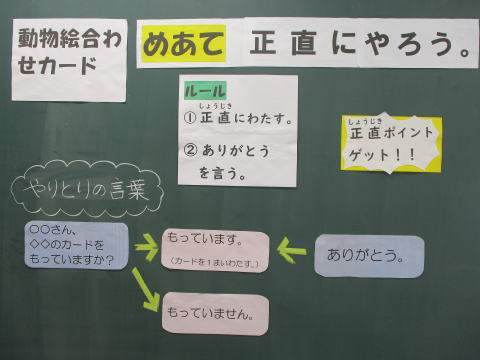 動物絵合わ
せカード
めあて 正直にやろう。
ルール
しょうじき
①正直にわたす。
②ありがとう
を言う。
しょうじき
正直ポイント
ゲット！！
やりとりの言葉
〇〇さん、
◇◇のカードを
もっていますか？
もっています。
（カードを１まいわたす。）
ありがとう。
もっていません。